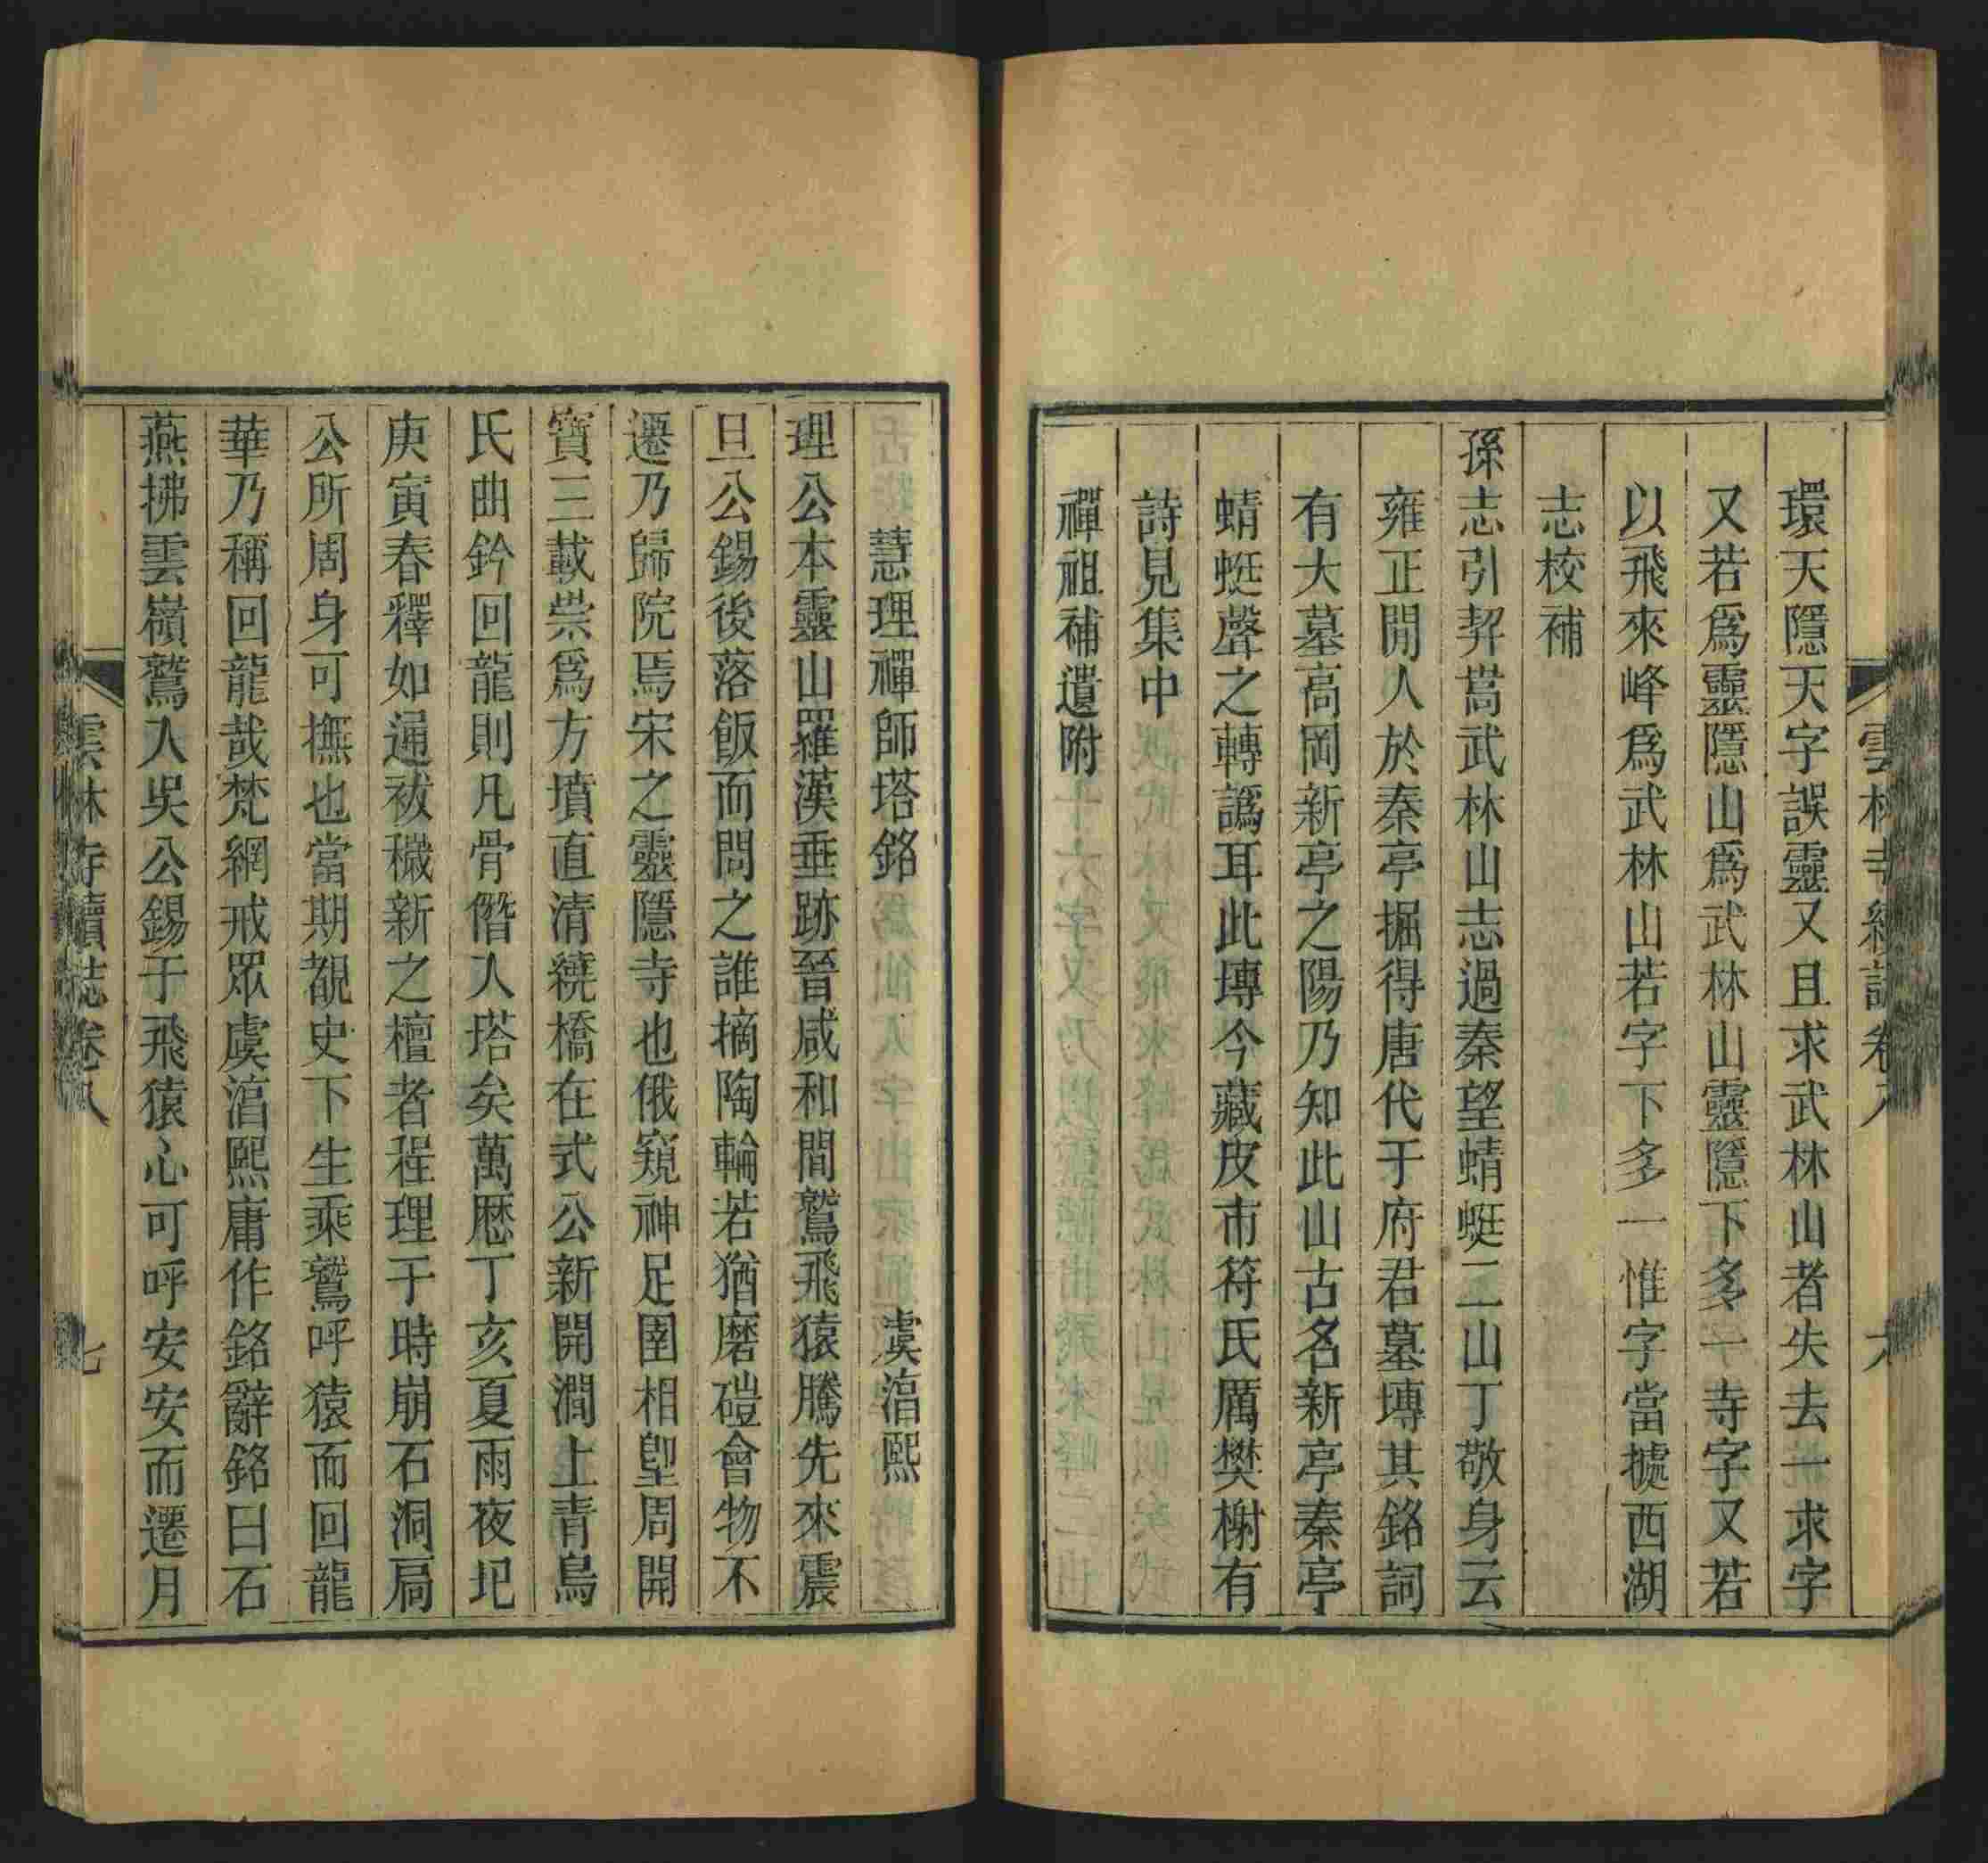 環天隱天字誤靈又且求武林山者失去一求字
又若爲靈隱山爲武林山靈隱下多一寺字又若
以飛來峰爲武林山若字下多一惟字當據西湖
志校補
孫志引契嵩武林山志過秦望蜻蜓二山丁敬身云
雍正閒人於秦亭掘得唐代于府君墓塼其銘詞
有大墓高岡新亭之陽乃知此山古名新亭秦亭
蜻蜓聲之轉譌耳此塼今藏皮市符氏厲樊榭有
詩見集中
禪祖補遺附
慧理禪師塔銘 虞淳熙
理公本靈山羅漢垂跡晉咸和間鷲飛猿騰先來震
旦公錫後落飯而問之誰摘陶輪若猶磨磑會物不
遷乃歸院焉宋之靈隱寺也俄窺神足圉相塱周開
寶三載祟爲方墳直清繞橋在式公新開澗上青鳥
氏曲鈐回龍則凡骨僭人塔矣萬歷丁亥夏雨夜圯
庚寅春釋如通祓穢新之檀者程理于時崩石洞扃
公所周身可撫也當期覩史下生乘鷲呼猿而回龍
華乃稱回龍哉梵網戒眾虞淳熙庸作銘辭銘曰石
燕拂雲嶺鷲入吳公錫于飛猿心可呼安安而遷月
雲林寺續誌卷八
七